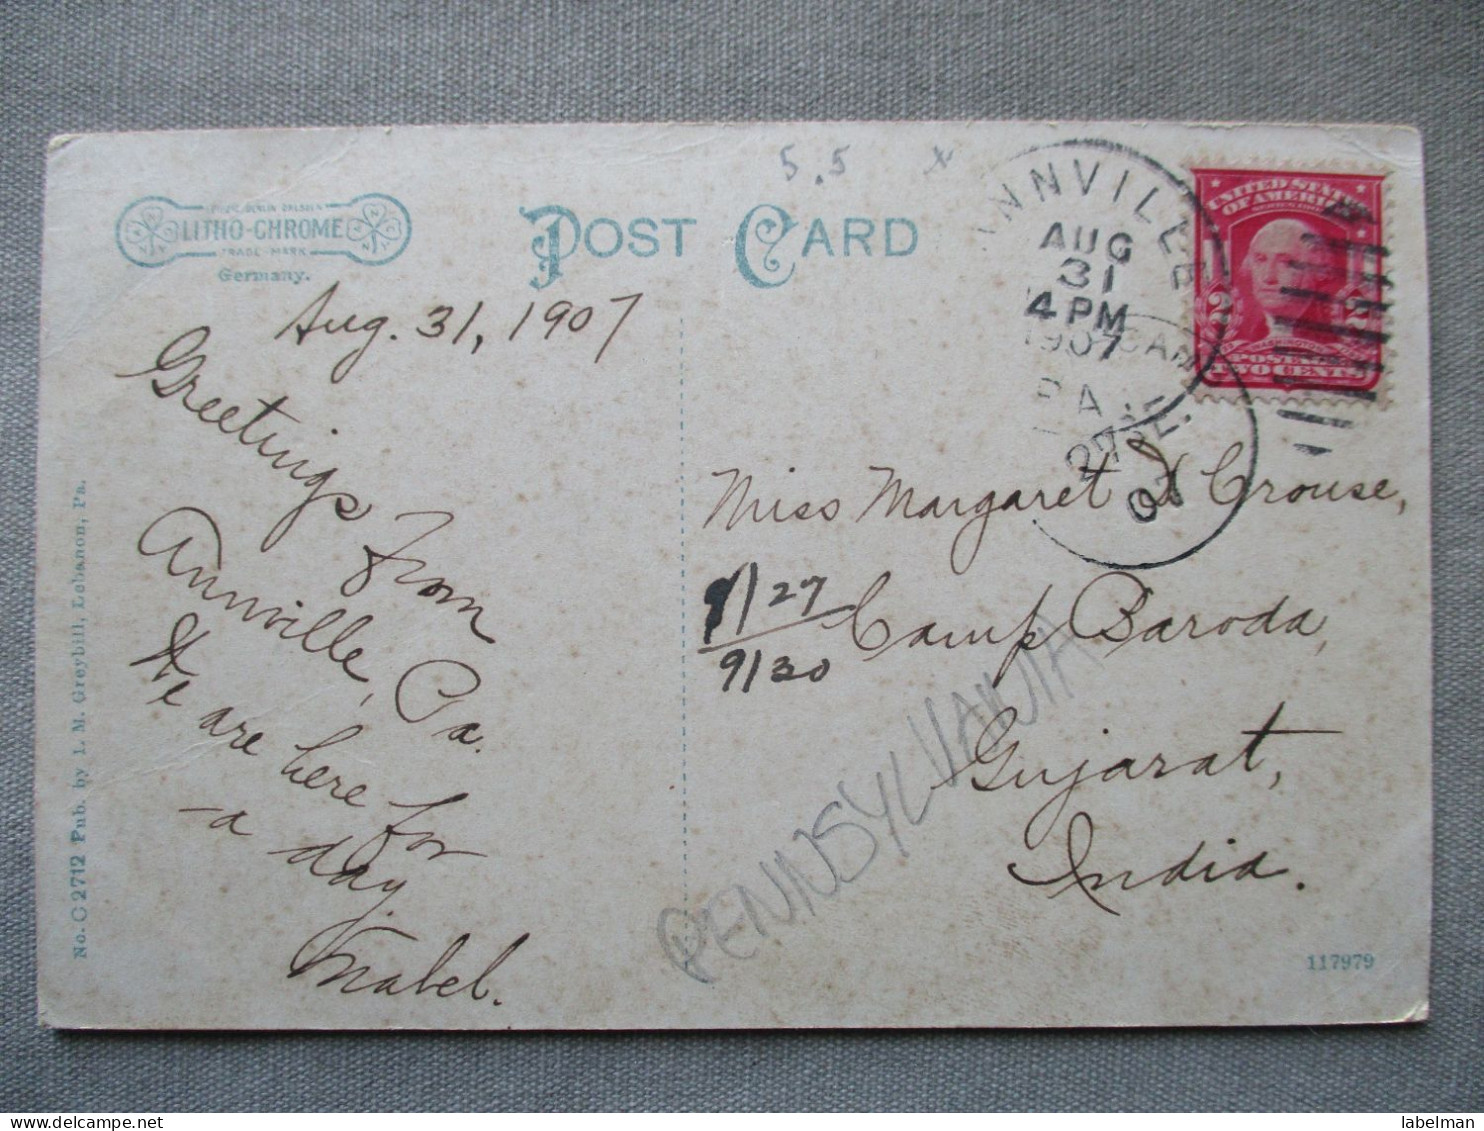 5.5 x
LITHO-CHROME
TRADE-MARK
Germany.
POST CARD
ANNVILLE
AUG
31
4 PM
1907
PA
UNITED STATES
OF AMERICA
2 2
POSTAGE
TWO CENTS
Aug. 31, 1907
Greetings
from
Annville, Pa.
We are here for
a day.
Mabel.
Miss Margaret D Crouse,
9/27
9/30
Camp Baroda,
Gujarat,
India.
PENNSYLVANIA
No. C 2712 Pub. by I. M. Greybill, Lebanon, Pa.
117979
labelman